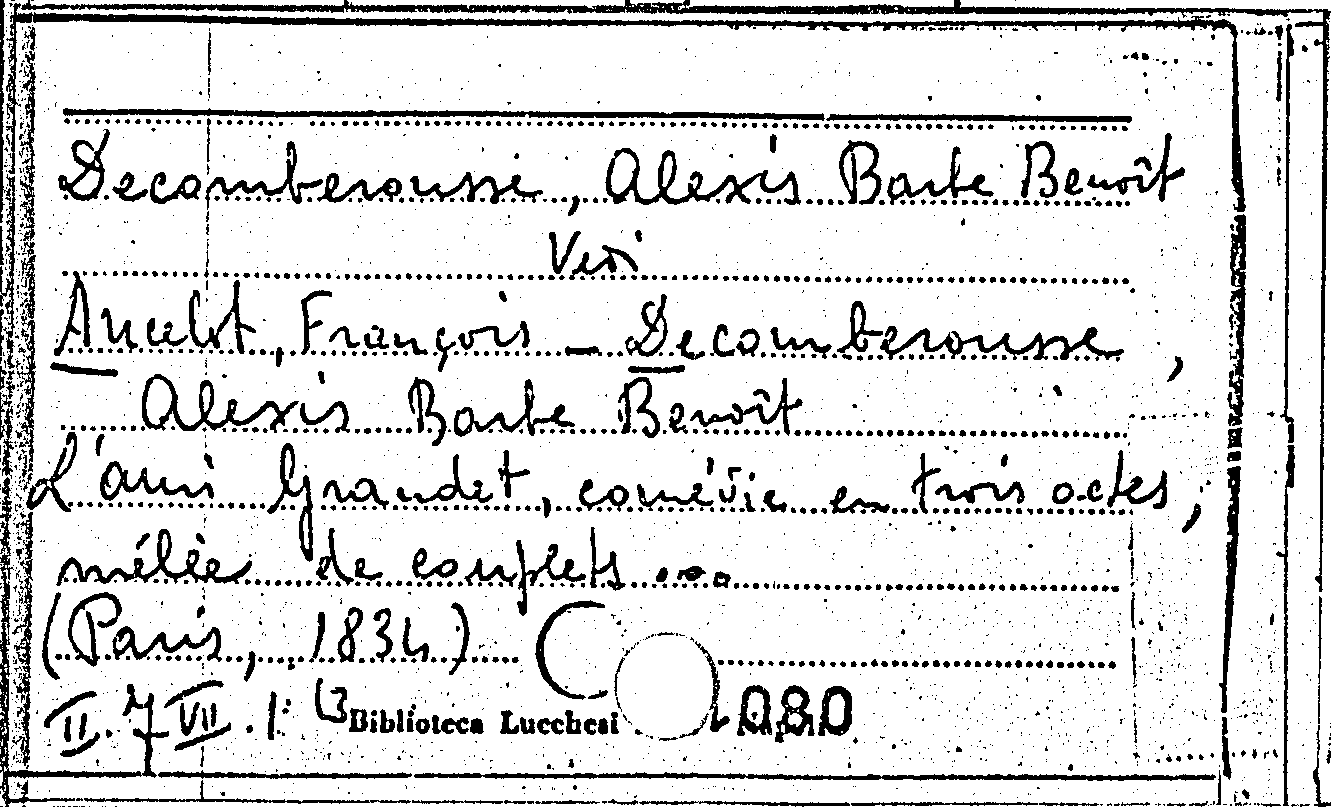 Decomberousse, Alexis Barbe Benoît
Vedi
Ancelot, François - Decomberousse,
Alexis Barbe Benoît
L'ami Grandet, comévie en trois actes,
mêlée de couplets ...
(Paris, 1834)
II. 7 VII. 1: Biblioteca Lucchesi 080